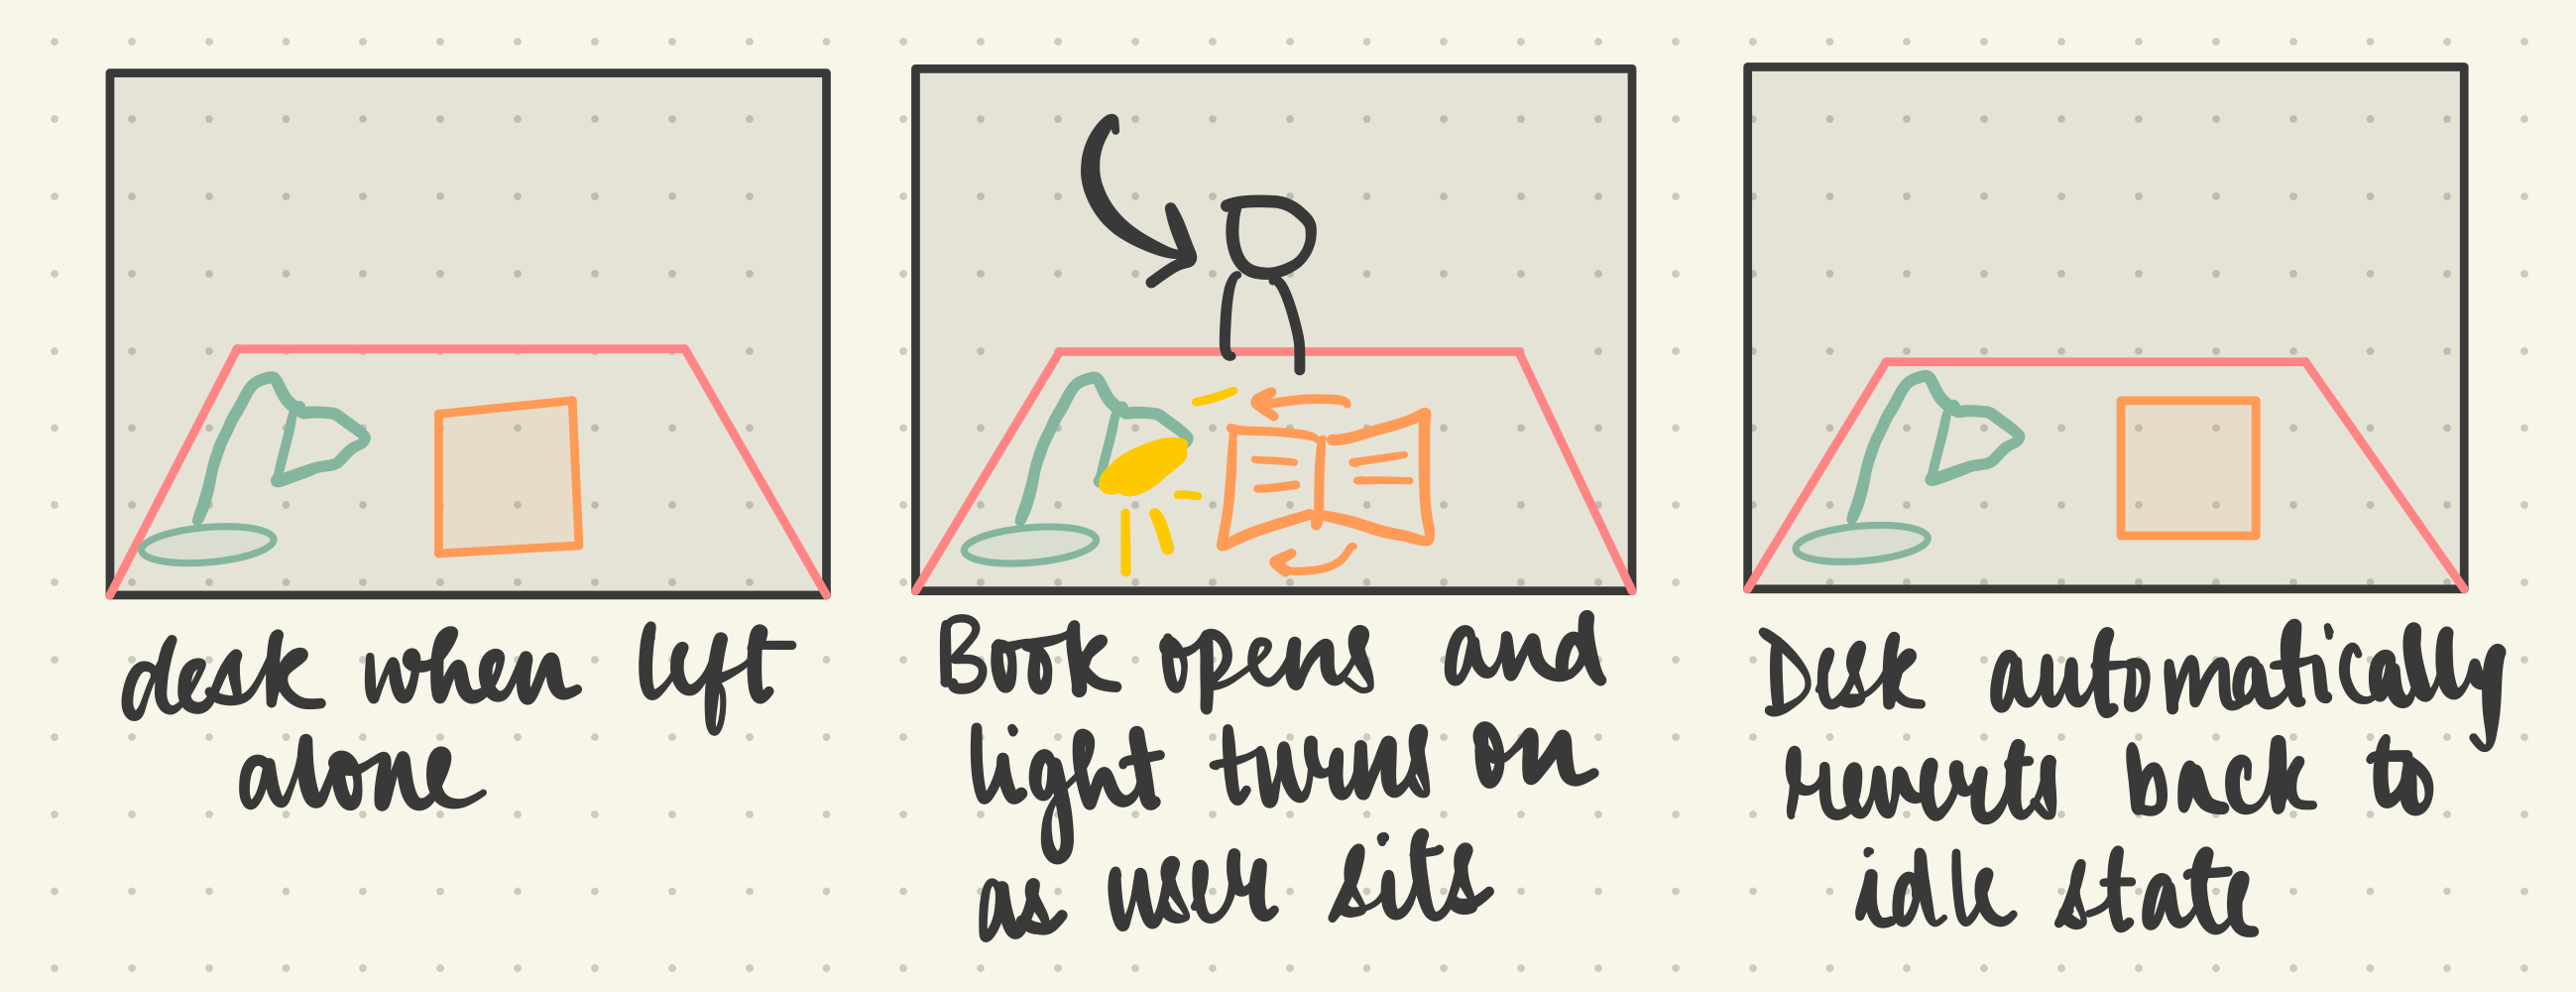 desk when left
alone
Book opens and
light turns on
as user sits
Desk automatically
reverts back to
idle state